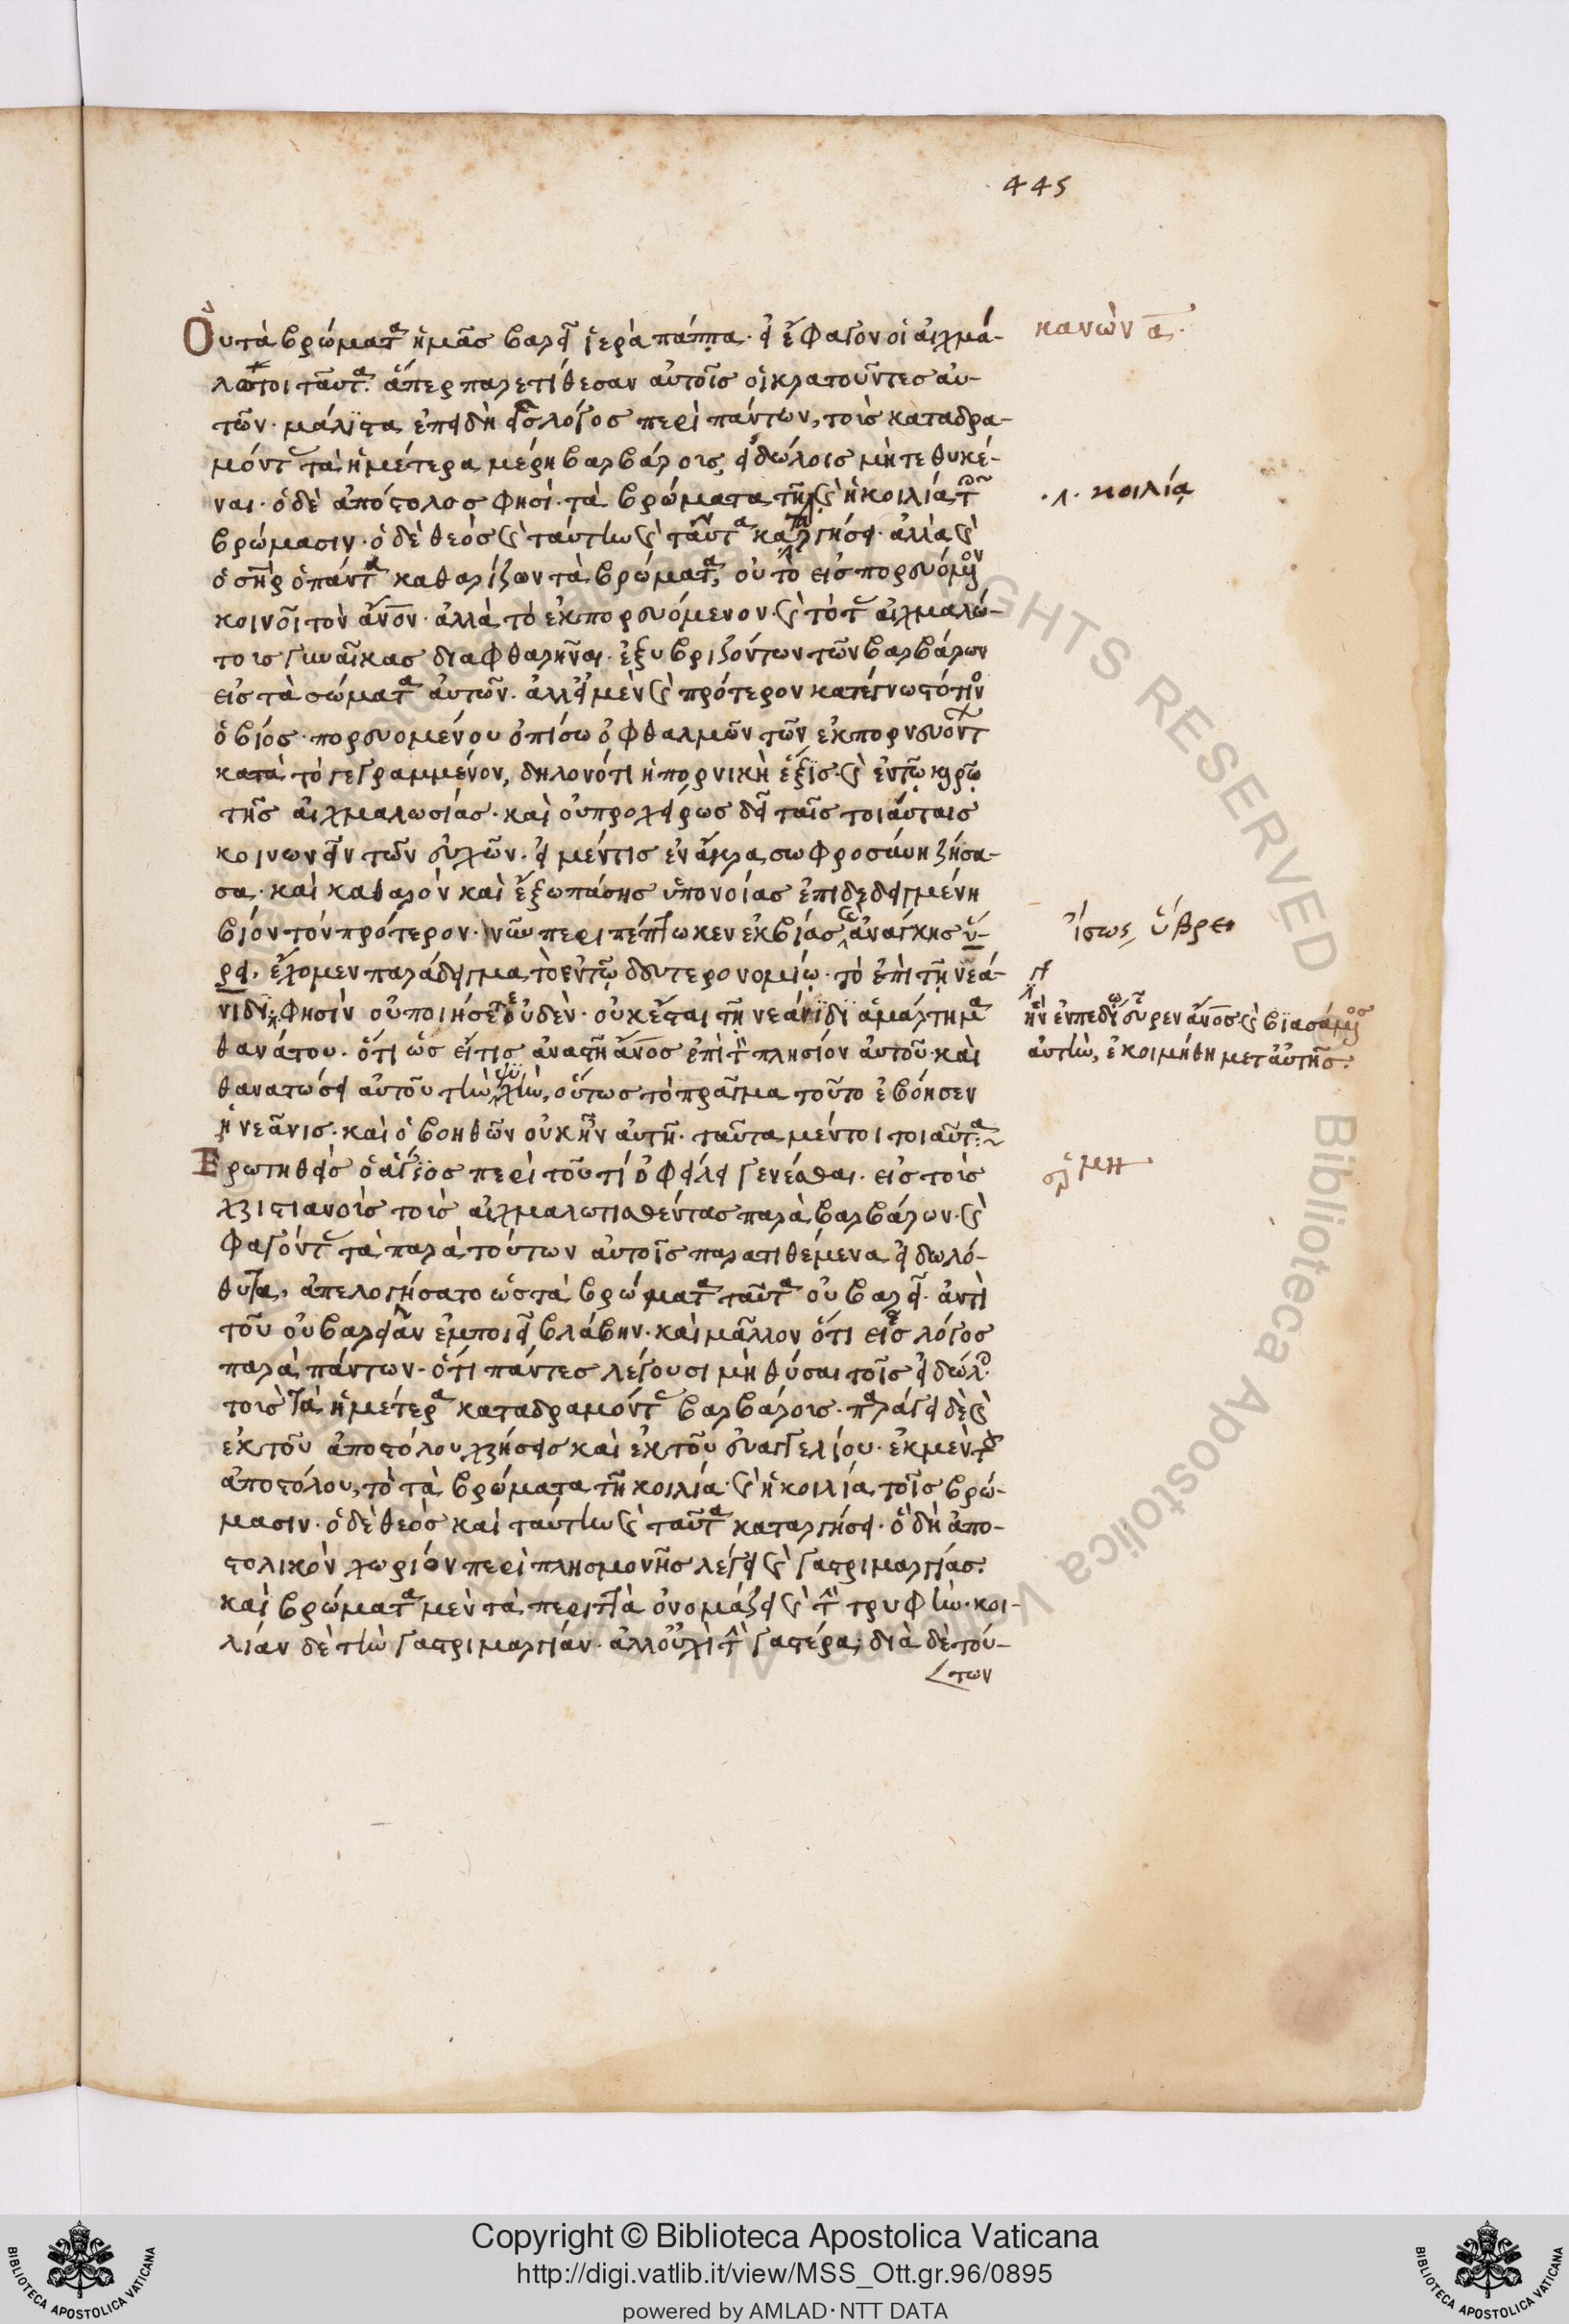 445
Οὐ τὰ βρώματα ἡμᾶς βαρεῖ ἱερὰ πάππα· εἰ ἔφαγον οἱ αἰχμά- κανὼν α·
λωτοι ταῦτα· ἅπερ παρετίθεσαν αὐτοῖς οἱ κρατοῦντες αὐ-
τῶν· μάλιστα ἐπειδὴ εἷς λόγος περὶ πάντων, τοὺς καταδρα-
μόντας τὰ ἡμέτερα μέρη βαρβάρους εἰδώλοις μὴ τεθυκέ-
ναι· ὁ δὲ ἀπόστολος φησί· τὰ βρώματα τῇ καὶ ἡ κοιλία τοῖς ·λ· κοιλίᾳ
βρώμασιν· ὁ δὲ θεὸς καὶ ταύτην καὶ ταῦτα καταργήσει· ἀλλὰ καὶ
ὁ σὴρ ὁ πάντα καθαρίζων τὰ βρώματα, οὐ τὸ εἰσπορευόμενον
κοινοῖ τὸν ἄνον· ἀλλὰ τὸ ἐκπορευόμενον· καὶ τὸ τὰς αἰχμαλώ-
τους γυναῖκας διαφθαρῆναι· ἐξυβριζόντων τῶν βαρβάρων
εἰς τὰ σώματα αὐτῶν· ἀλλ' εἰ μὲν καὶ πρότερον κατέγνωστό τινων
ὁ βίος· πορευομένου ὀπίσω ὀφθαλμῶν τῶν ἐκπορνευόντων
κατὰ τὸ γεγραμμένον, δηλονότι ἡ πορνικὴ ἕξις· καὶ ἐν τῷ καιρῷ
τῆς αἰχμαλωσίας· καὶ οὐ προχείρως δεῖ ταῖς τοιαύταις
κοινωνεῖν τῶν εὐχῶν· εἰ μέντις ἐν ἄκρα σωφροσύνη ζήσα-
σα· καὶ καθαρὸν καὶ ἔξω πάσης ὑπονοίας ἐπιδεδειγμένη
βίον τὸν πρότερον· νῦν περιπέπτωκεν ἐκ βίας καὶ ἀνάγκης ὕ- ἴσως, ὕβρει
ρει, ἔχομεν παράδειγμα τὸ ἐν τῷ δευτερονομίῳ· τὸ ἐπὶ τῇ νεά-
νιδι, φησὶν οὐ ποιήσετε οὐδὲν· οὐκ ἔσται τῇ νεάνιδι ἁμάρτημα ἣν ἐν πεδίῳ εὗρεν ἄνος καὶ βιασάμενος
θανάτου· ὅτι ὡς εἴ τις ἀναστῇ ἄνος ἐπὶ τὸν πλησίον αὐτοῦ· καὶ αὐτὴν, ἐκοιμήθη μετ' αὐτῆς·
θανατώσει αὐτοῦ τὴν ψυχὴν, οὕτως τὸ πρᾶγμα τοῦτο ἐβόησεν
ἡ νεᾶνις· καὶ ὁ βοηθῶν οὐκ ἦν αὐτῇ· ταῦτα μέντοι τοιαῦτα·
Ἐρωτηθεὶς ὁ ἅγιος περὶ τοῦ τί ὀφείλει γενέσθαι· εἰς τοὺς
χριστιανοὺς τοὺς αἰχμαλωτισθέντας παρὰ βαρβάρων· καὶ
φαγόντας τὰ παρὰ τούτων αὐτοῖς παρατιθέμενα εἰδωλό-
θυτα, ἀπελογήσατο ὡς τὰ βρώματα ταῦτα οὐ βαρεῖ· ἀντὶ
τοῦ οὐ βαρεῖαν ἐμποιεῖ βλάβην· καὶ μᾶλλον ὅτι εἷς λόγος
παρὰ πάντων· ὅτι πάντες λέγουσι μὴ θύσαι τοῖς εἰδώλοις
τοὺς τὰ ἡμέτερα καταδραμόντας βαρβάρους· παράγει δὲ καὶ
ἐκ τοῦ ἀποστόλου χρήσεις καὶ ἐκ τοῦ εὐαγγελίου· ἐκ μὲν τοῦ
ἀποστόλου, τὸ τὰ βρώματα τῇ κοιλία· καὶ ἡ κοιλία τοῖς βρώ-
μασιν· ὁ δὲ θεὸς καὶ ταύτην καὶ ταῦτα καταργήσει· ὃ δὴ ἀπο-
στολικὸν χωρίον περὶ πλησμονῆς λέγει καὶ γαστριμαργίας·
καὶ βρώματα μὲν τὰ περιττὰ ὀνομάζει καὶ τὴν τρυφὴν· κοι-
λίαν δὲ τὴν γαστριμαργίαν· ἀλλ' οὐχὶ τὴν γαστέρα, διὰ δὲ τού-
των
Copyright © Biblioteca Apostolica Vaticana
http://digi.vatlib.it/view/MSS_Ott.gr.96/0895
powered by AMLAD·NTT DATA